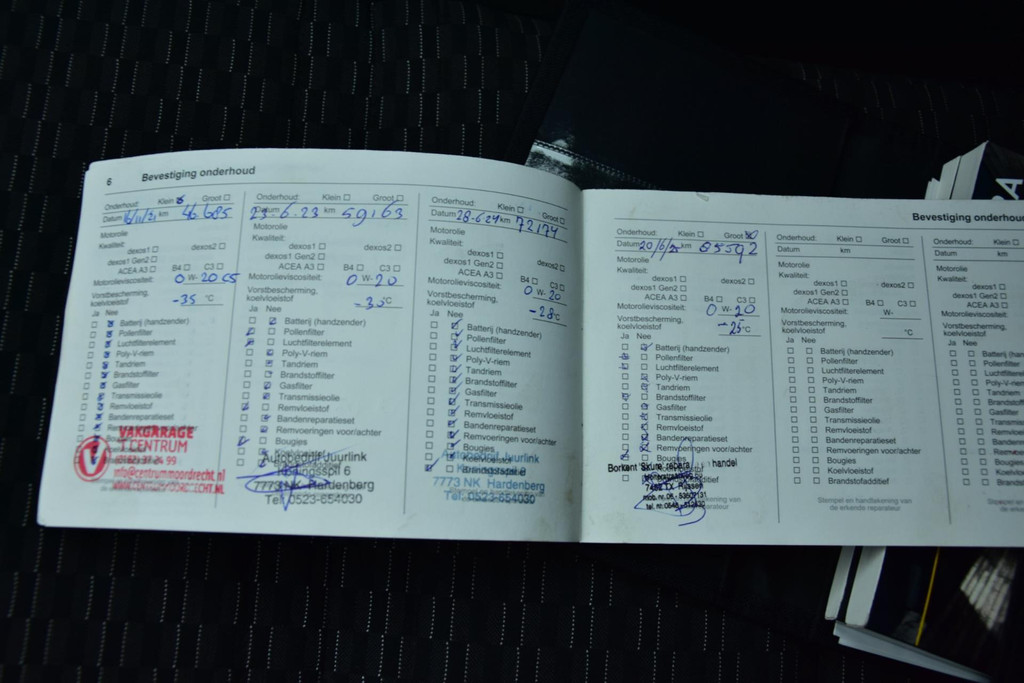 6 Bevestiging onderhoud
Onderhoud: Klein Groot
Datum 16/11/21 km 46.685
Motorolie
Kwaliteit:
dexos1 dexos2
dexos1 Gen2
ACEA A3 B4 C3
Motorolieviscositeit: 0 W- 20 C5
Vorstbescherming,
koelvloeistof -35 °C
Ja Nee
Batterij (handzender)
Pollenfilter
Luchtfilterelement
Poly-V-riem
Tandriem
Brandstoffilter
Gasfilter
Transmissieolie
Remvloeistof
Bandenreparatieset
VAKGARAGE
'T CENTRUM
info@centrummoordrecht.nl
Onderhoud: Klein Groot
Datum 23.6.23 km 59163
Motorolie
Kwaliteit:
dexos1 dexos2
dexos1 Gen2
ACEA A3 B4 C3
Motorolieviscositeit: 0 W- 20
Vorstbescherming,
koelvloeistof -35 °C
Ja Nee
Batterij (handzender)
Pollenfilter
Luchtfilterelement
Poly-V-riem
Tandriem
Brandstoffilter
Gasfilter
Transmissieolie
Remvloeistof
Bandenreparatieset
Remvoeringen voor/achter
Bougies
Autobedrijf Juurlink
7773 NK Hardenberg
Tel. 0523-654030
Onderhoud: Klein Groot
Datum 28-6-24 km 72174
Motorolie
Kwaliteit:
dexos1 dexos2
dexos1 Gen2
ACEA A3 B4 C3
Motorolieviscositeit: 0 W- 20
Vorstbescherming,
koelvloeistof -28°C
Ja Nee
Batterij (handzender)
Pollenfilter
Luchtfilterelement
Poly-V-riem
Tandriem
Brandstoffilter
Gasfilter
Transmissieolie
Remvloeistof
Bandenreparatieset
Remvoeringen voor/achter
Bougies
Autobedrijf Juurlink
7773 NK Hardenberg
Tel. 0523-654030
Bevestiging onderhoud
Onderhoud: Klein Groot
Datum 20/6/25 km 85592
Motorolie
Kwaliteit:
dexos1 dexos2
dexos1 Gen2
ACEA A3 B4 C3
Motorolieviscositeit: 0 W- 20
Vorstbescherming,
koelvloeistof -25°C
Ja Nee
Batterij (handzender)
Pollenfilter
Luchtfilterelement
Poly-V-riem
Tandriem
Brandstoffilter
Gasfilter
Transmissieolie
Remvloeistof
Bandenreparatieset
Remvoeringen voor/achter
Bougies
handel
Onderhoud: Klein Groot
Datum km
Motorolie
Kwaliteit:
dexos1 dexos2
dexos1 Gen2
ACEA A3 B4 C3
Motorolieviscositeit: W-
Vorstbescherming,
koelvloeistof °C
Ja Nee
Batterij (handzender)
Pollenfilter
Luchtfilterelement
Poly-V-riem
Tandriem
Brandstoffilter
Gasfilter
Transmissieolie
Remvloeistof
Bandenreparatieset
Remvoeringen voor/achter
Bougies
Koelvloeistof
Brandstofadditief
Stempel en handtekening van
de erkende reparateur
Onderhoud: Klein
Datum km
Motorolie
Kwaliteit:
dexos1
dexos1 Gen2
ACEA A3
Motorolieviscositeit:
Vorstbescherming,
koelvloeistof
Ja Nee
Pollenfilter
Poly-V-riem
Tandriem
Gasfilter
Bougies